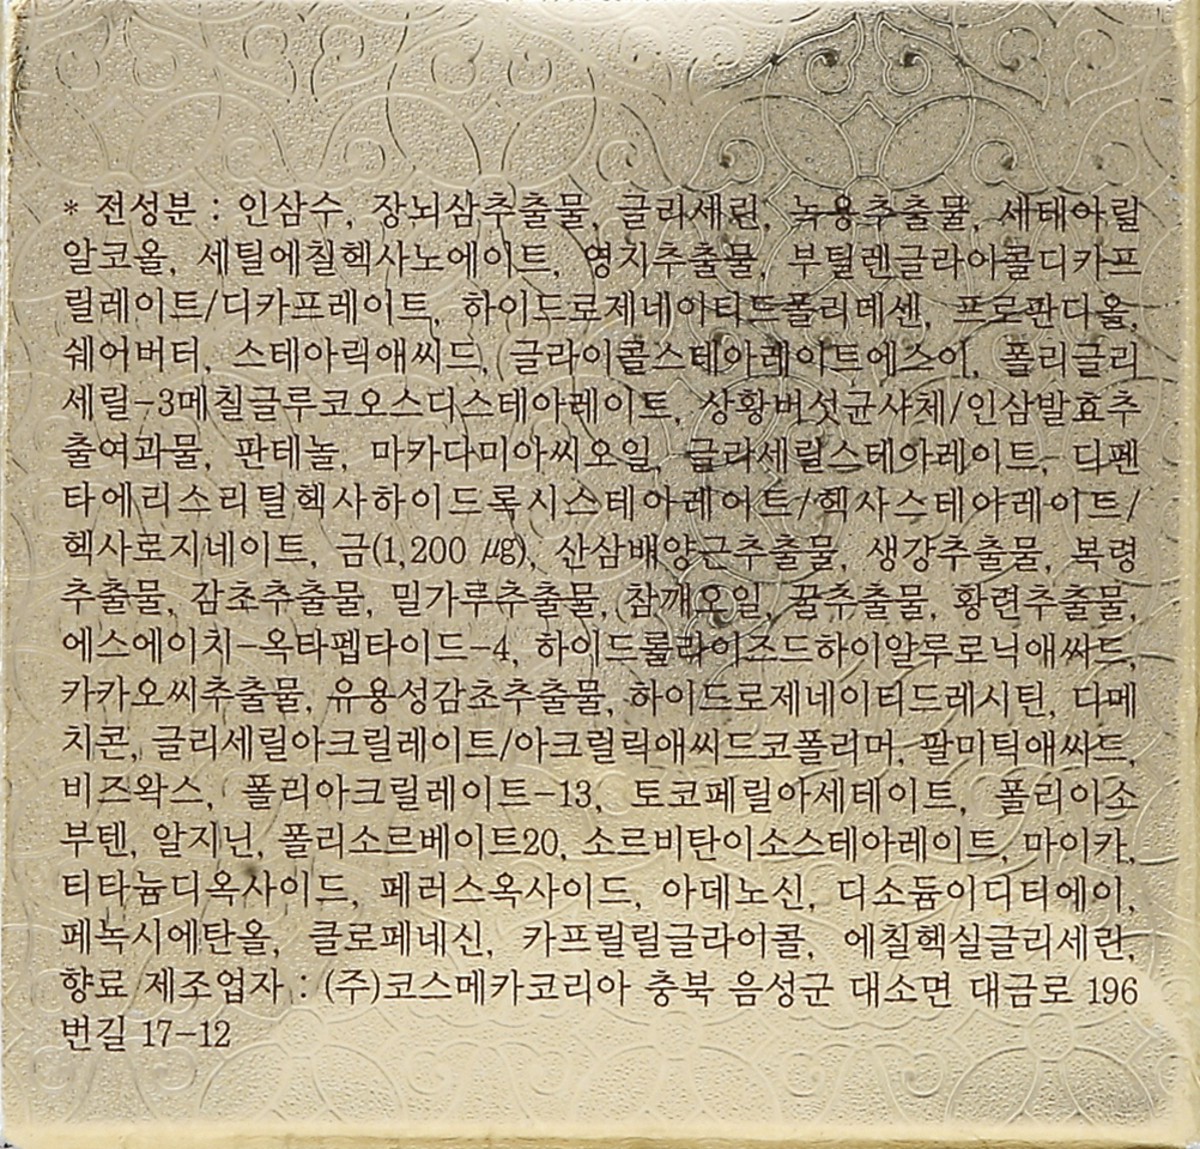 * 전성분 : 인삼수, 장뇌삼추출물, 글리세린, 녹용추출물, 세테아릴
알코올, 세틸에칠헥사노에이트, 영지추출물, 부틸렌글라이콜디카프
릴레이트/디카프레이트, 하이드로제네이티드폴리데센, 프로판디올,
쉐어버터, 스테아릭애씨드, 글라이콜스테아레이트에스이, 폴리글리
세릴-3메칠글루코오스디스테아레이트, 상황버섯균사체/인삼발효추
출여과물, 판테놀, 마카다미아씨오일, 글리세릴스테아레이트, 디펜
타에리스리틸헥사하이드록시스테아레이트/헥사스테아레이트/
헥사로지네이트, 금(1,200 ㎍), 산삼배양근추출물, 생강추출물, 복령
추출물, 감초추출물, 밀가루추출물, 참깨오일, 꿀추출물, 황련추출물,
에스에이치-옥타펩타이드-4, 하이드롤라이즈드하이알루로닉애씨드,
카카오씨추출물, 유용성감초추출물, 하이드로제네이티드레시틴, 디메
치콘, 글리세릴아크릴레이트/아크릴릭애씨드코폴리머, 팔미틱애씨드,
비즈왁스, 폴리아크릴레이트-13, 토코페릴아세테이트, 폴리이소
부텐, 알지닌, 폴리소르베이트20, 소르비탄이소스테아레이트, 마이카,
티타늄디옥사이드, 페러스옥사이드, 아데노신, 디소듐이디티에이,
페녹시에탄올, 클로페네신, 카프릴릴글라이콜, 에칠헥실글리세린,
향료 제조업자 : (주)코스메카코리아 충북 음성군 대소면 대금로 196
번길 17-12